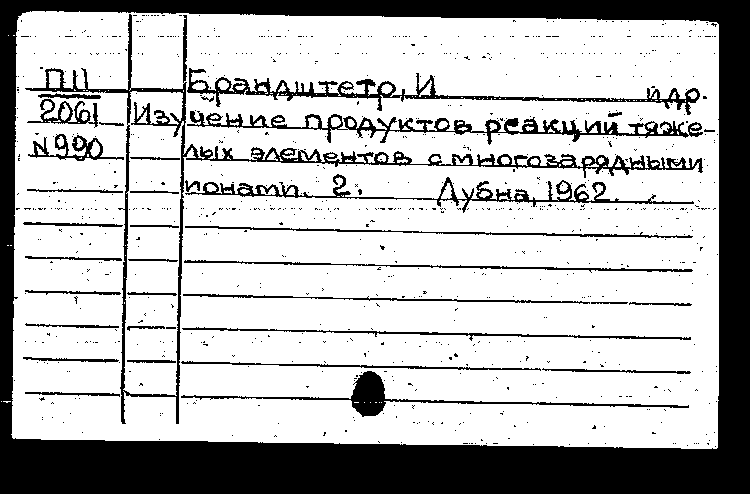 ПШ Брандштетр, И и др.
2061 Изучение продуктов реакций тяже-
N990 лых элементов с многозарядными
ионами. 2. Дубна, 1962.